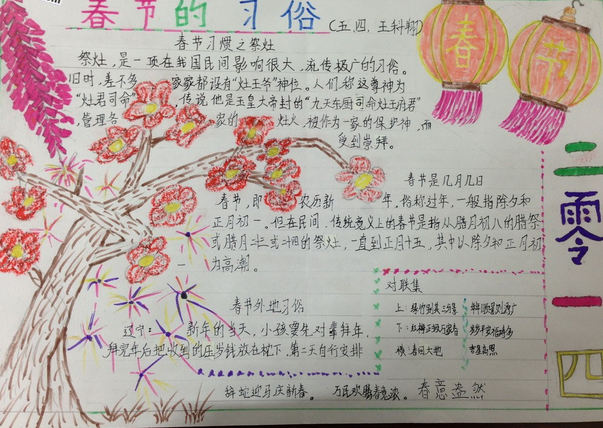 春节的习俗
(五.四.王科翔)
春 节
春节习惯之祭灶
祭灶,是一项在我国民间影响很大、流传极广的习俗。
旧时,差不多家家都设有“灶王爷”神位。人们称这尊神为
“灶君司命”,传说他是玉皇大帝封的“九天东厨司命灶王府君”
,管理各家的灶火,被作为一家的保护神,而
受到崇拜。
春节是几月几日
春节,即农历新年,俗称过年,一般指除夕和
正月初一。但在民间,传统意义上的春节是指从腊月初八的腊祭
或腊月二十三或二十四的祭灶,一直到正月十五,其中以除夕和正月初
一为高潮。
春节外地习俗
辽宁:新年的当天,小孩要先对辈拜年,
拜完年后把收到的压岁钱放在枕下,第二天自行安排
对联集
上:
下:
横:春回大地
辞蛇迎马庆新春。 万民欢腾春意浓。 春意盎然
二零一四